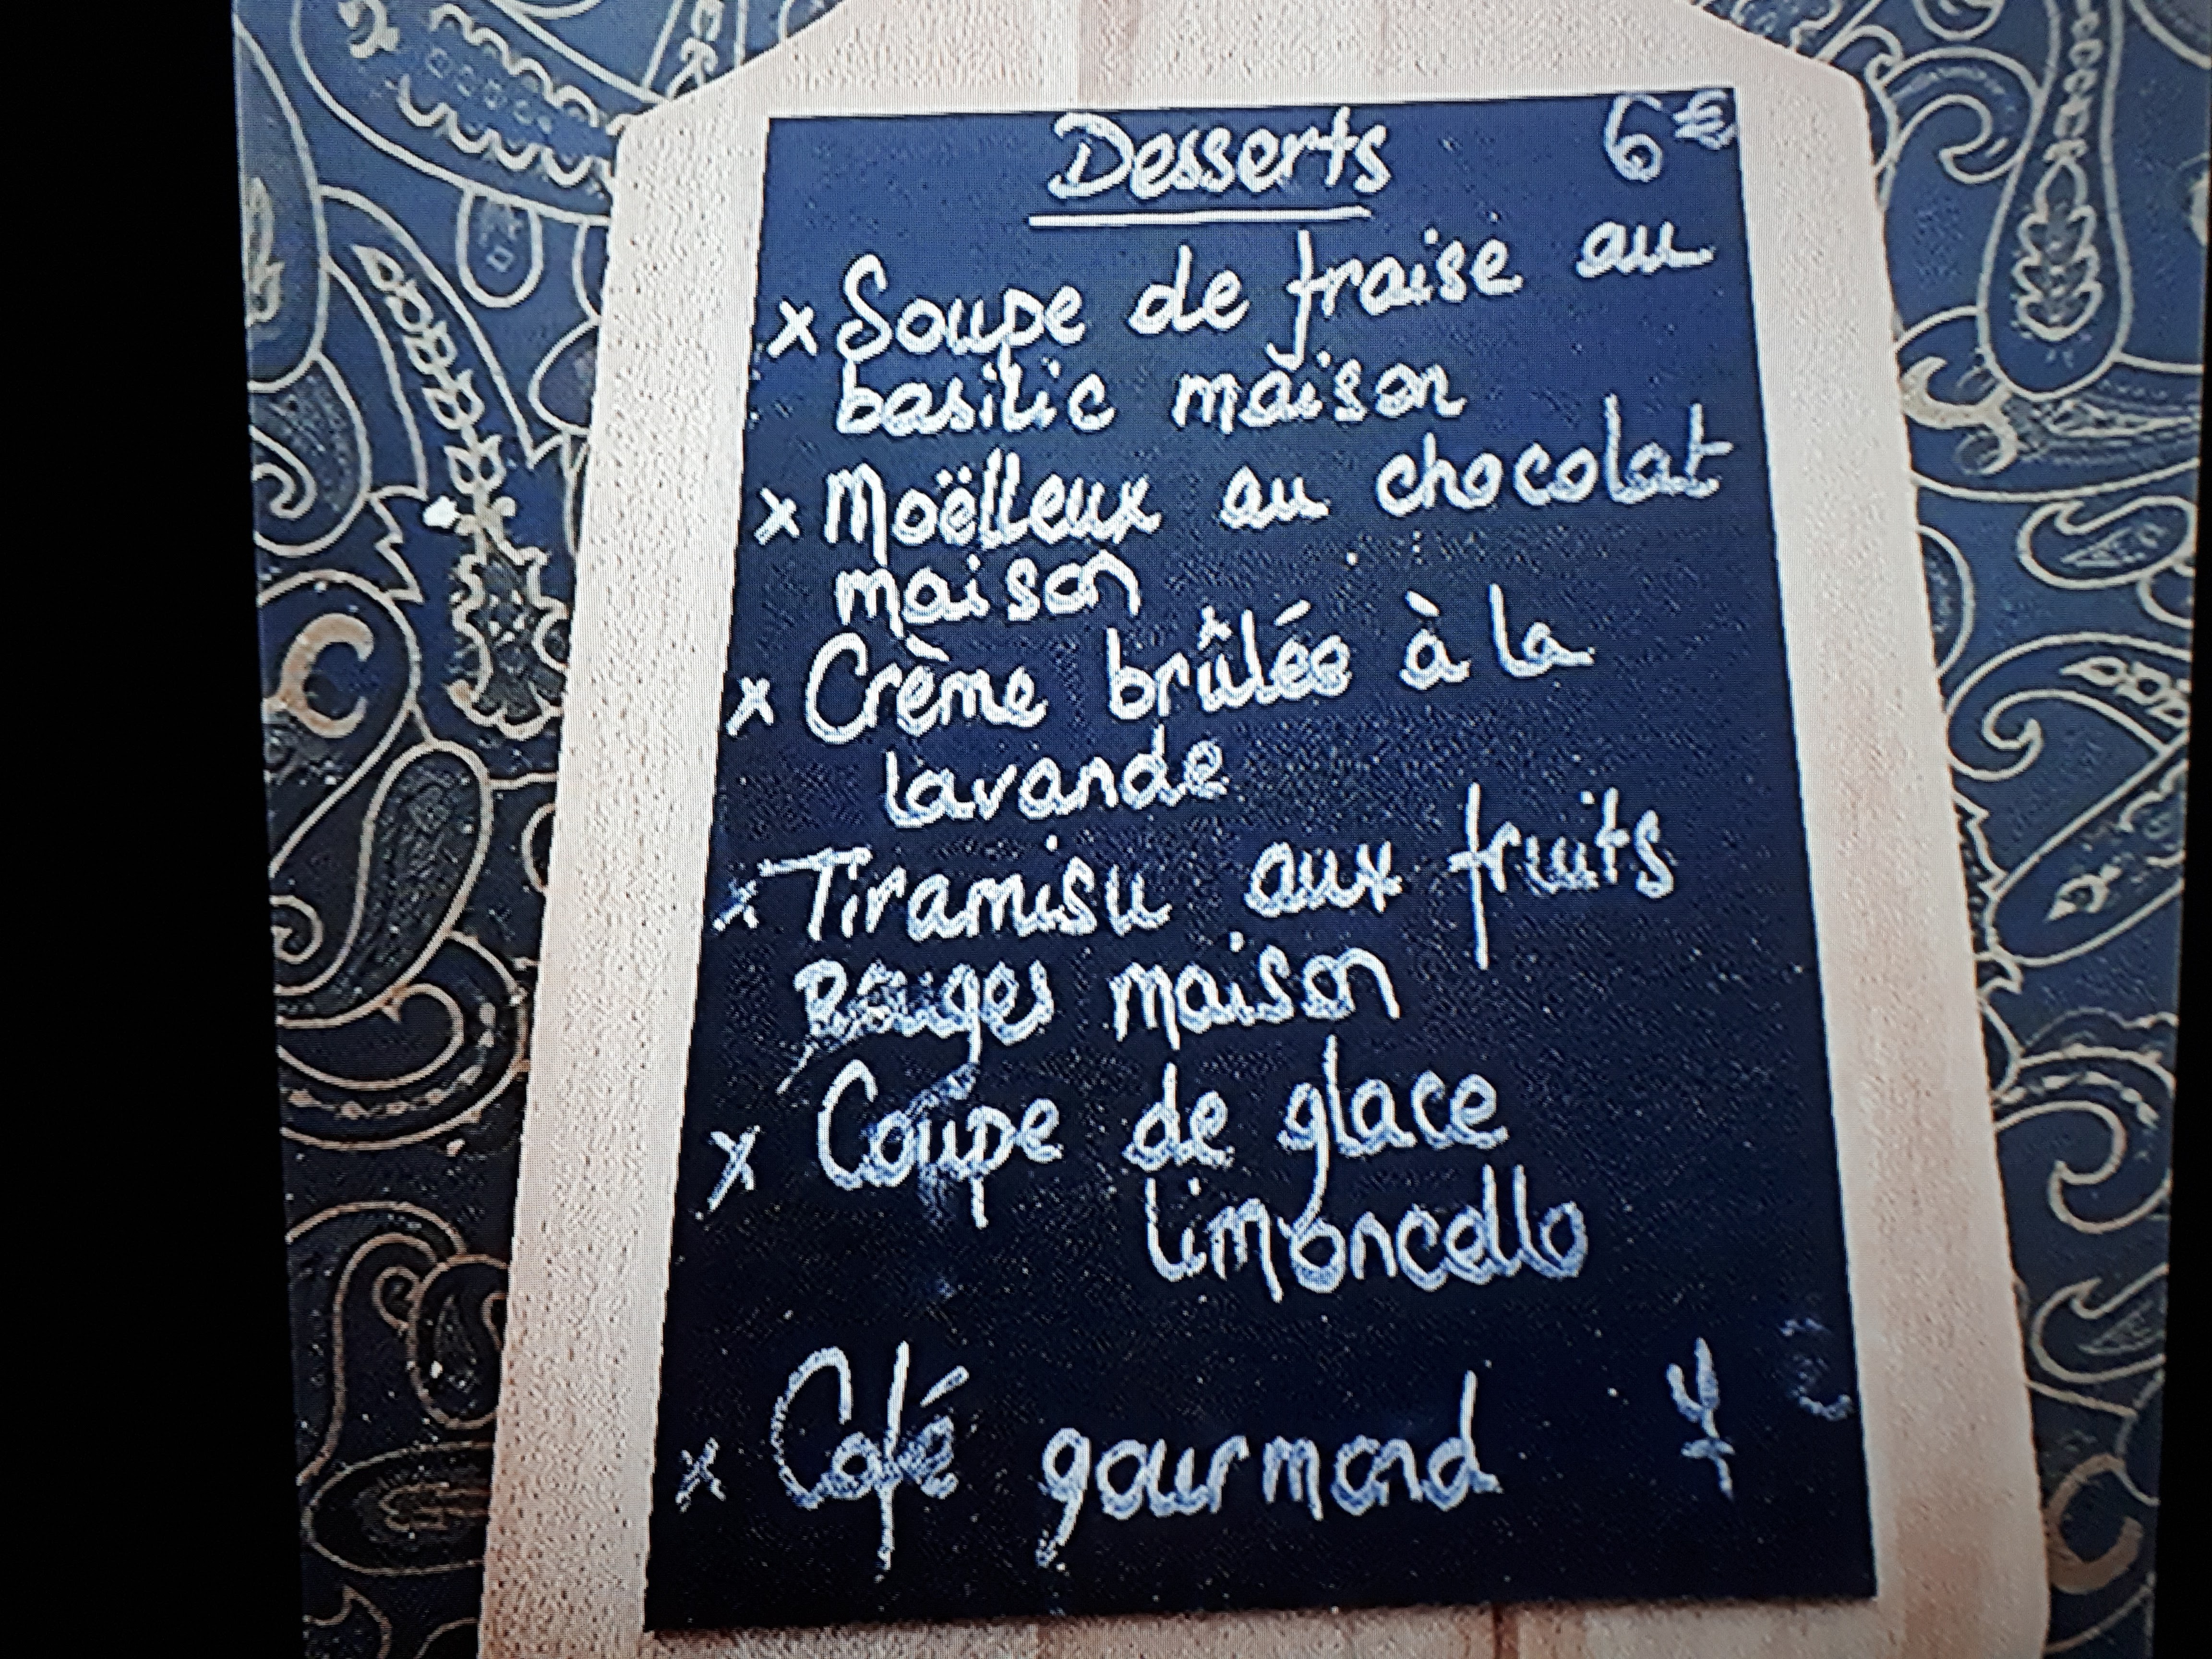 Desserts 6€
x Soupe de fraise au
basilic maison
x Moëlleux au chocolat
maison
x Crème brûlée à la
lavande
x Tiramisu aux fruits
Rouges maison
x Coupe de glace
limoncello
x Café gourmand